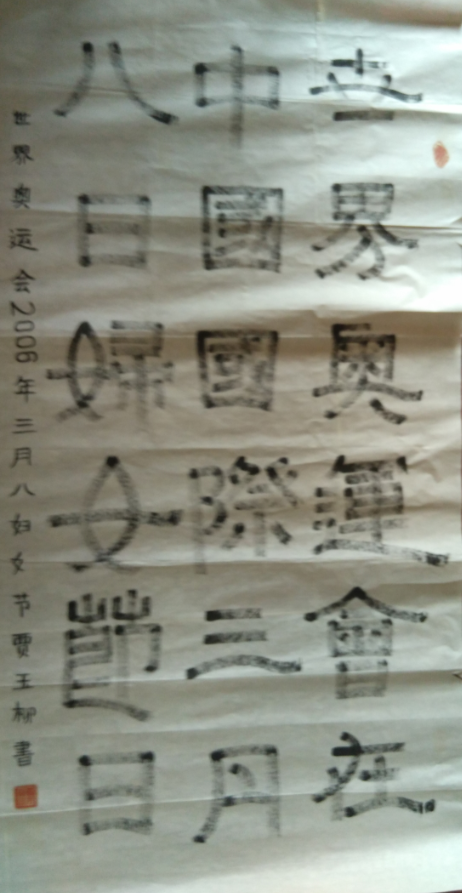 世界奥運會在
中國國際三月
八日婦女節日
世界奥运会2006年三月八妇女节贾玉柳書